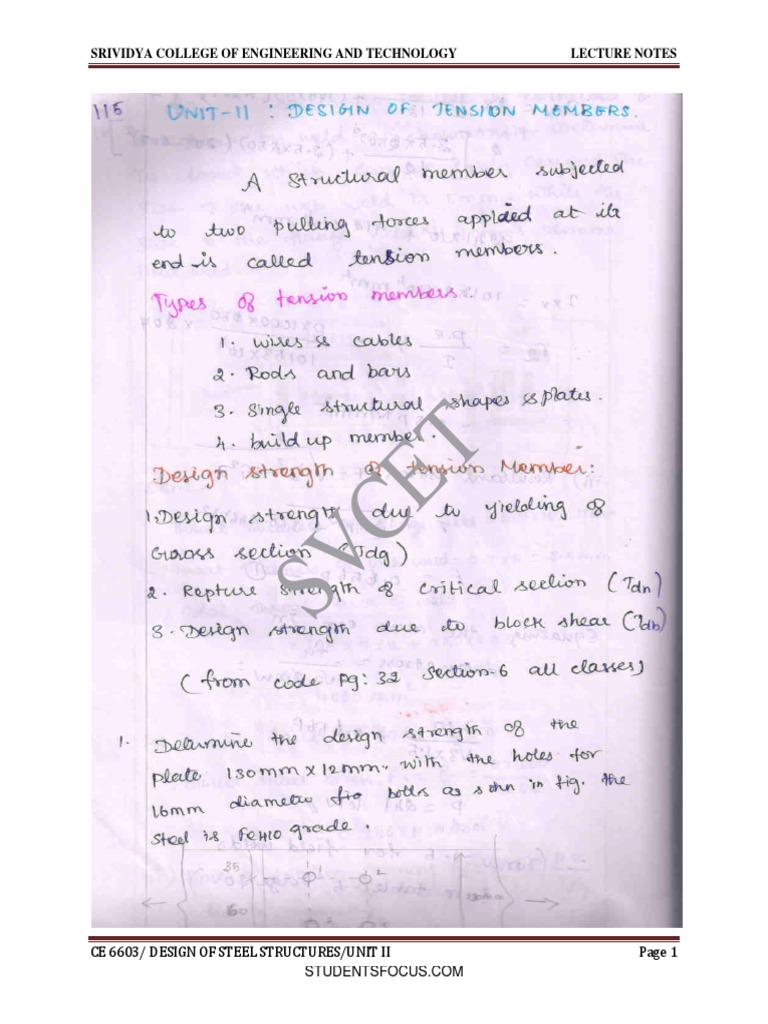 SRIVIDYA COLLEGE OF ENGINEERING AND TECHNOLOGY LECTURE NOTES
115 UNIT-II : DESIGIN OF TENSION MEMBERS.
A structural member subjected
to two pulling forces applaied at its
end is called tension members.
Types of tension members:
1. wires & cables
2. Rods and bars
3. Single structural shapes & plates.
4. build up member.
Design strength of tension Member:
1. Design strength due to yielding of
Gross section (Tdg)
2. Rapture strength of critical section (Tdn)
3. Design strength due to block shear (Tdb)
(from code Pg: 32 section-6 all classes)
1. Determine the design strength of the
plate 130mm x 12mm. with the holes for
16mm diameter bolts as in fig. the
Steel is Fe410 grade.
35 1 2
60 130mm
SVCET
CE 6603/ DESIGN OF STEEL STRUCTURES/UNIT II Page 1
STUDENTSFOCUS.COM